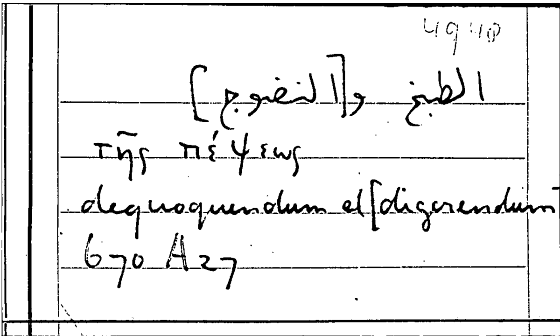 4940
الطبخ و[النضوج]
τῆς πέψεως
dequoquendum et [digerendum
670 A27